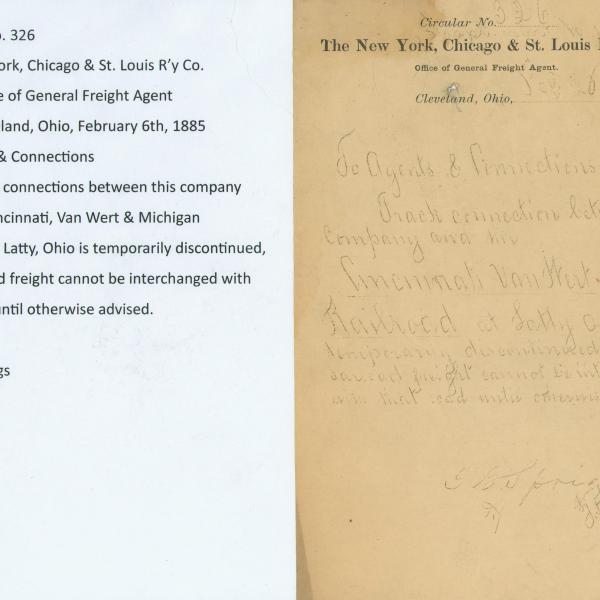 . 326
ork, Chicago & St. Louis R'y Co.
e of General Freight Agent
land, Ohio, February 6th, 1885
& Connections
connections between this company
ncinnati, Van Wert & Michigan
Latty, Ohio is temporarily discontinued,
d freight cannot be interchanged with
until otherwise advised.
gs
Circular No. 326
The New York, Chicago & St. Louis
Office of General Freight Agent.
Cleveland, Ohio,
To Agents & Connections
Track connection bet
Company and the
Cincinnati Van Wert
Railroad at Latty O
temporary discontinued
freight cannot be int
with that road until otherwis